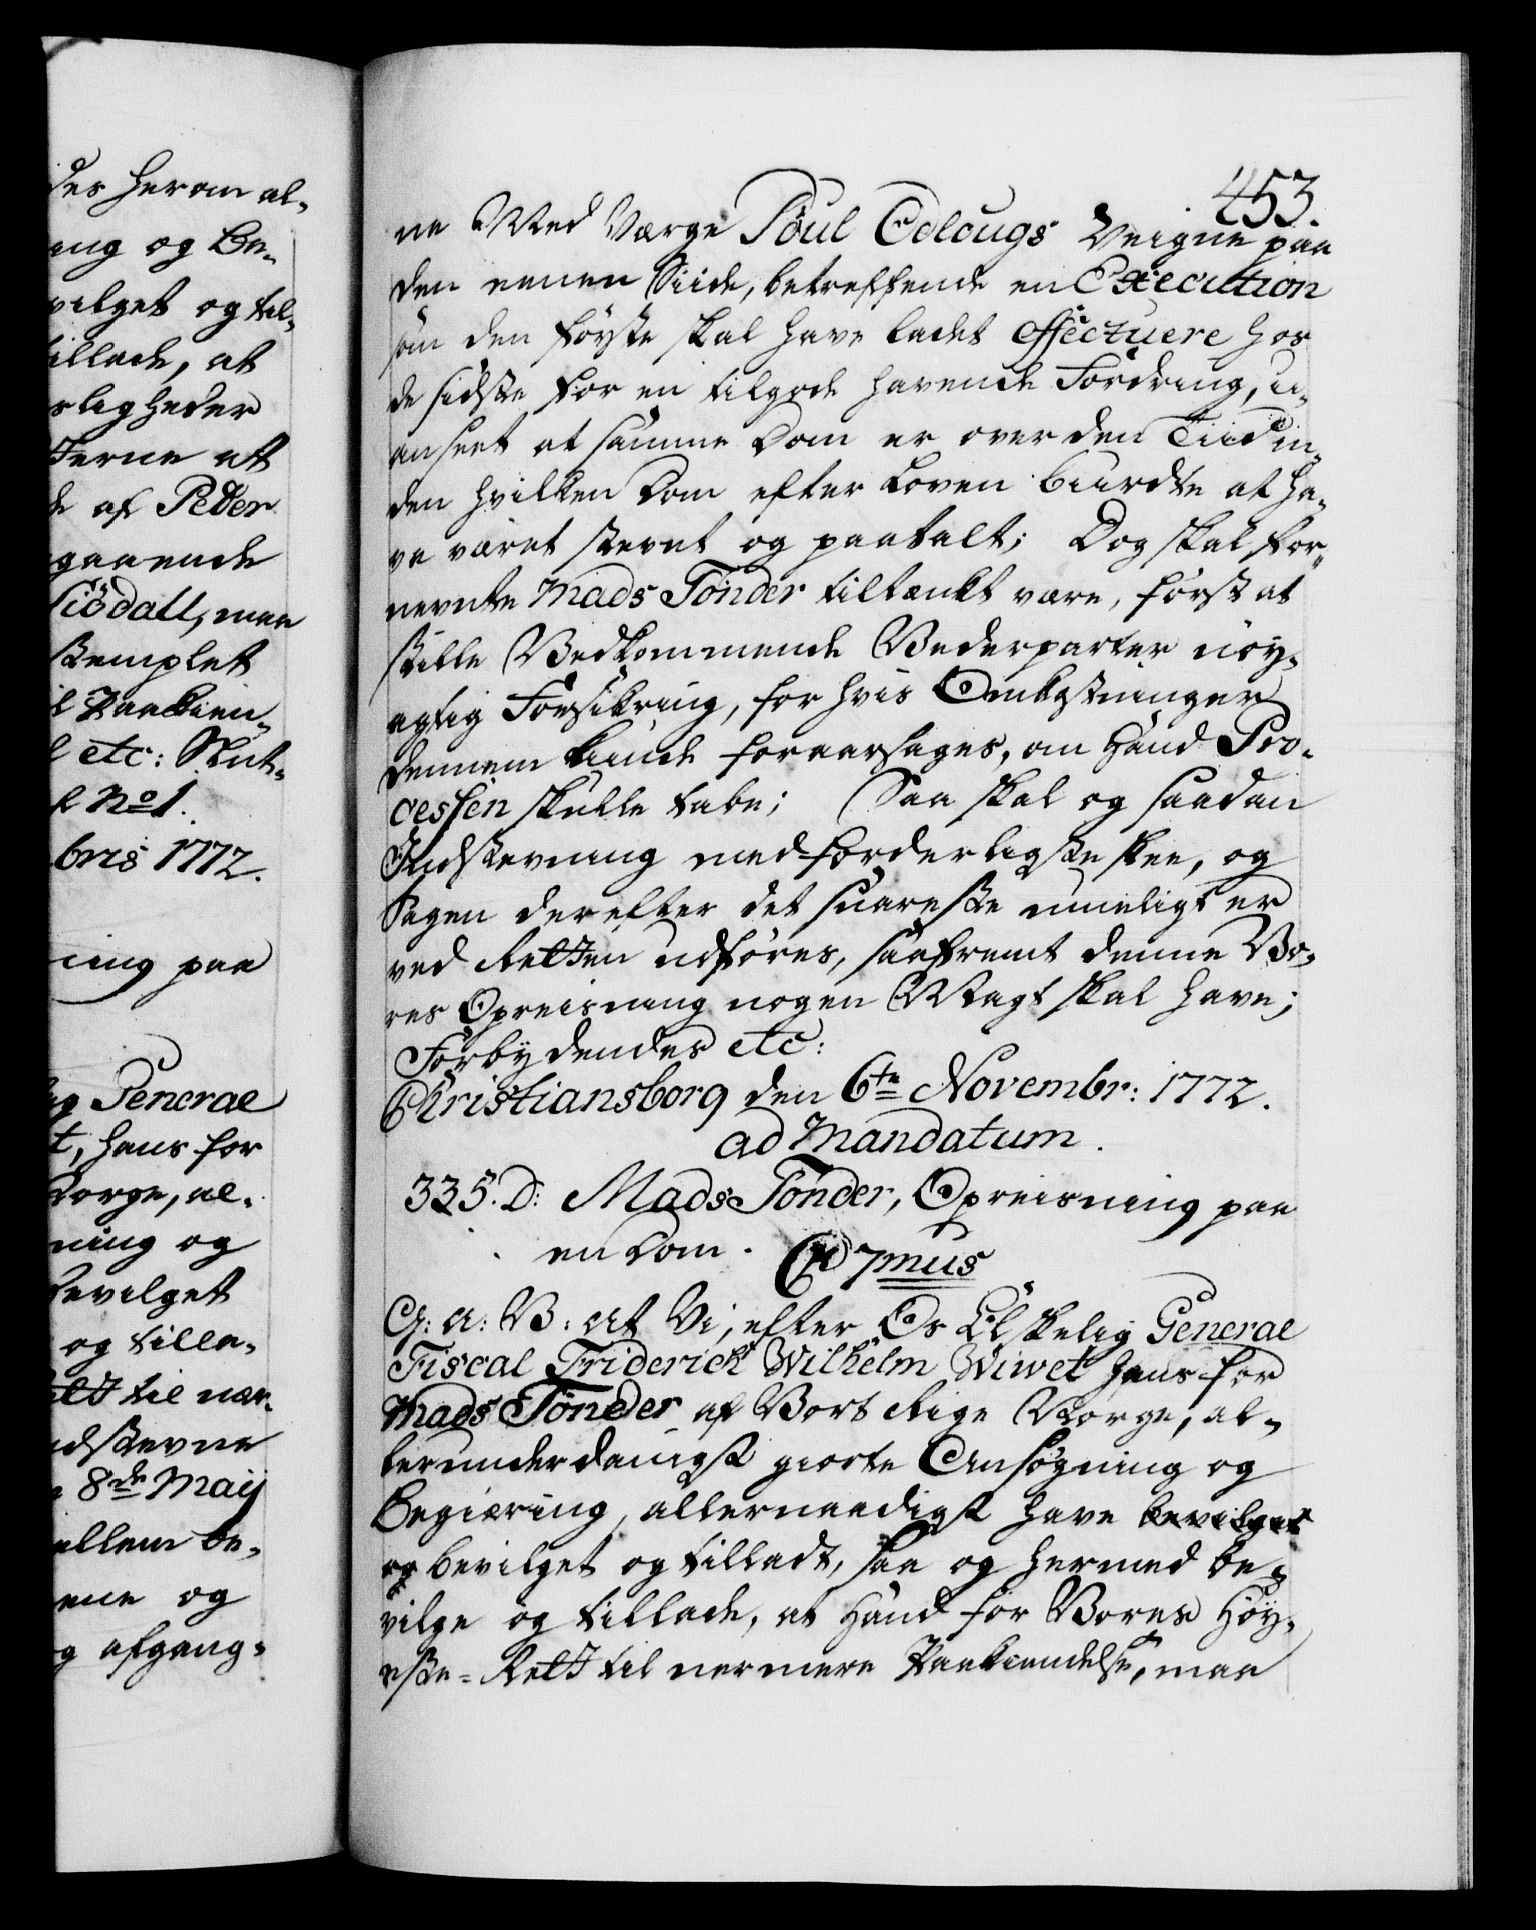 des herom al-
ing og Be-
vilget og til-
tillade, at
sligheder
Ferne at
de af Peder
gaaende
Siödall, maa
stemplet
il Paakien-
l etc: Skul-
l No 1.
bris 1772.
ning paa
ig General
t, hans for
Norge, al-
ning og
bevilget
og tilla-
ett til nær-
dstevne
8de Maij
ellem be-
ene og
g afgang-
453.
ne Med Værge Poul Edlougs Veigne paa
den eenen Siide, betreffende en Execution
som den første skal have ladet effectuere hos
de sidste for en tilgode havende Fordring, u-
anseet at samme Dom er over den Tiid in-
den hvilken Dom efter Loven burdte at ha-
ve været stevnt og paatalt; Dog skal for-
nevnte Mads Tönder tiltænkt være, først at
stille Vedkommende Vederparter nöy-
agtig Forsikring, for hvis Omkostninger
dennem kunde foraarsages, om hand Pro-
cessen skulle tabe; Saa skal og saadan
Indstevning med forderligste skee, og
Sagen derefter det snareste mueligt er
ved Retten udføres, saafremt denne Vo-
res Opreisning nogen Magt skal have;
Forbydendes etc:
Christiansborg den 6te Novembr: 1772.
ad Mandatum.
335. D: Mads Tönder, Opreisning paa
en Dom. C 7mus
G: A: V: at Vi, efter Os Elskelig General
Fiscal Friderich Wilhelm Wiwet hans for
Mads Tönder af Vort Rige Norge, al-
lerunderdanigst giorte Ansøgning og
Begiæring, allernaadigst have bevilget
og bevilget og tilladt, saa og hermed be-
vilge og tillade, at hand for Vores Høy-
este-Rett til nermere Paakiendelse, maa